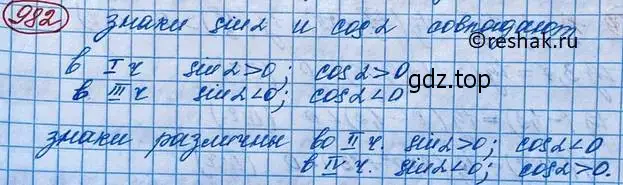 982 знаки sin α и cos α совпадают
©reshak.ru
в I ч sin α > 0 ; cos α > 0
gdz.top
в III ч sin α < 0 ; cos α < 0
знаки различны во II ч. sin α > 0 ; cos α < 0
в IV ч. sin α < 0 ; cos α > 0.